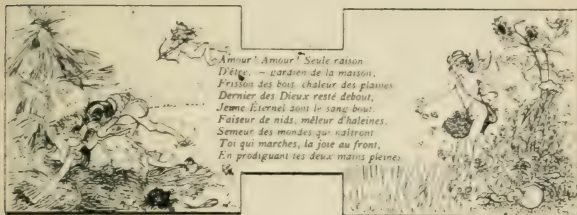 Amour ! Amour ! Seule raison
D'être, – gardien de la maison,
Frisson des bois, chaleur des plaines
Dernier des Dieux resté debout,
Jeune Éternel dont le sang bout.
Faiseur de nids, mêleur d'haleines,
Semeur des mondes qui naîtront
Toi qui marches, la joie au front,
En prodiguant tes deux mains pleines